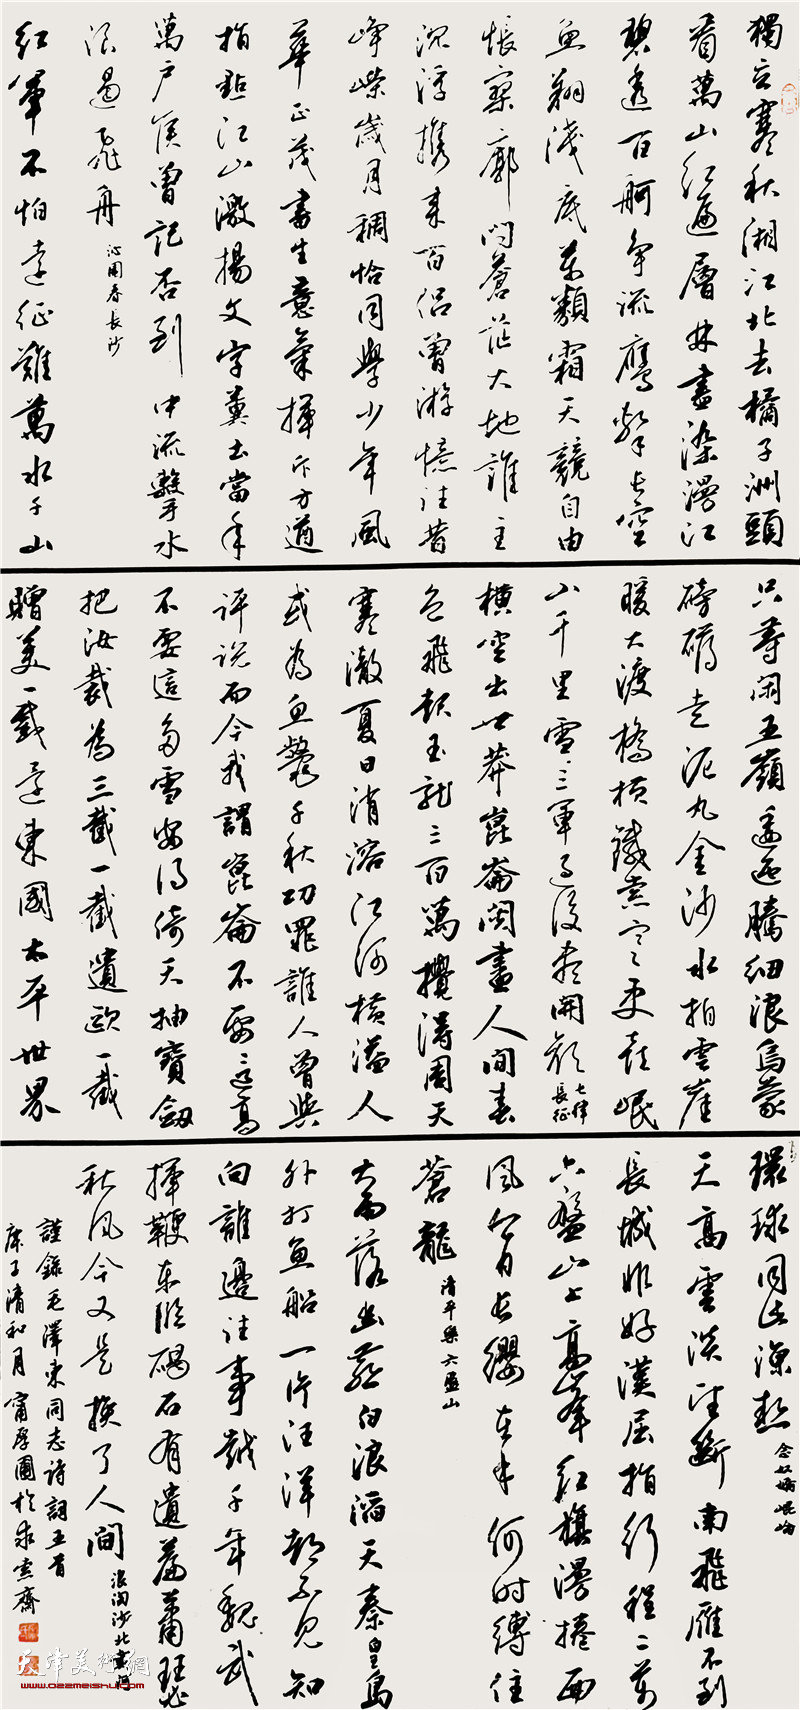 獨立寒秋湘江北去橘子洲頭
看萬山紅遍層林盡染漫江
碧透百舸爭流鷹擊長空
魚翔淺底萬類霜天競自由
悵寥廓問蒼茫大地誰主
沉浮携來百侶曾游憶往昔
崢嶸歲月稠恰同學少年風
華正茂書生意氣揮斥方遒
指點江山激揚文字糞土當年
萬戶侯曾記否到中流擊水
浪遏飛舟 沁園春長沙
紅軍不怕遠征難萬水千山
只等閑五嶺逶迤騰細浪烏蒙
磅礴走泥丸金沙水拍雲崖
暖大渡橋橫鐵索寒更喜岷
山千里雪三軍過後盡開顏 七律長征
橫空出世莽崑崙閱盡人間春
色飛起玉龍三百萬攪得周天
寒澈夏日消溶江河橫溢人
或為魚鱉千秋功罪誰人曾與
評說而今我謂崑崙不要這高
不要這多雪安得倚天抽寶劍
把汝裁為三截一截遺歐一截
贈美一截還東國太平世界
環球同此涼熱 念奴嬌崑崙
天高雲淡望斷南飛雁不到
長城非好漢屈指行程二萬
六盤山上高峰紅旗漫捲西
風今日長纓在手何時縛住
蒼龍 清平樂六盤山
大雨落幽燕白浪滔天秦皇島
外打魚船一片汪洋都不見知
向誰邊往事越千年魏武
揮鞭東臨碣石有遺篇蕭瑟
秋風今又是換了人間 浪淘沙北戴河
謹錄毛澤東同志詩詞五首
庚子清和月甯厚圃於求索齋
天津美術網